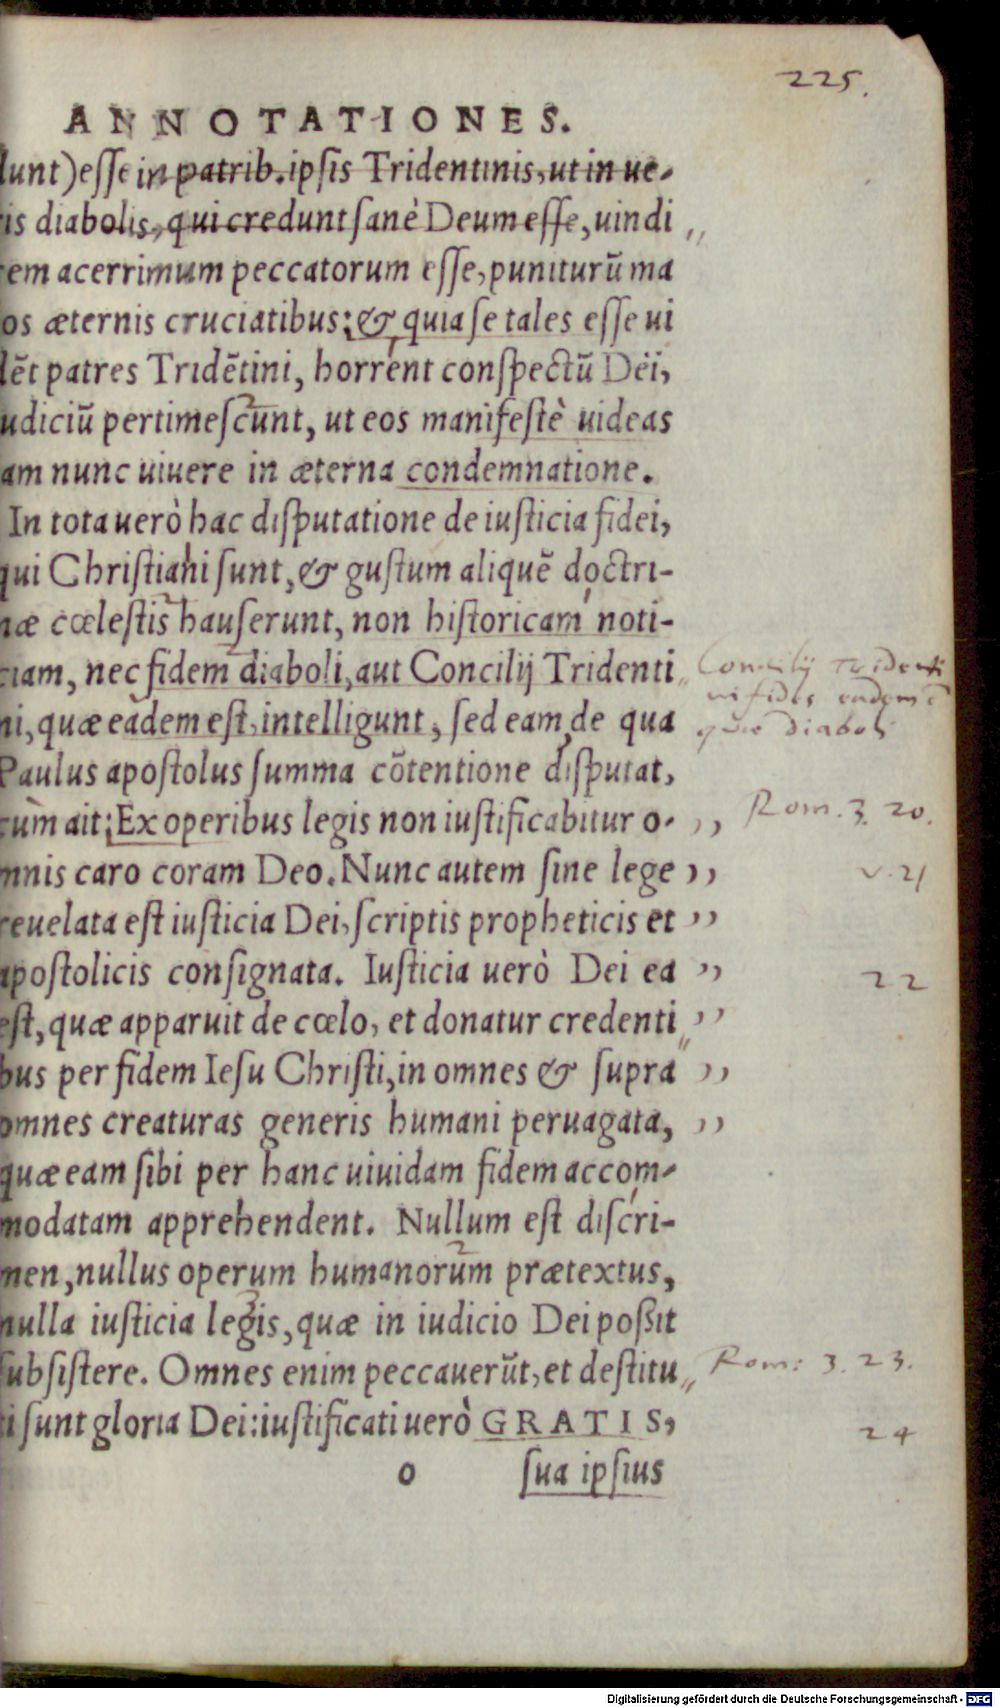 225.
ANNOTATIONES.
dunt) esse in patrib. ipsis Tridentinis, ut in ue-
ris diabolis, qui credunt sanè Deum esse, uindi
cem acerrimum peccatorum esse, puniturū ma
los æternis cruciatibus: & quia se tales esse ui
dēt patres Tridētini, horrent conspectū Dei,
iudiciū pertimescunt, ut eos manifestè uideas
iam nunc uiuere in æterna condemnatione.
In tota uerò hac disputatione de iusticia fidei,
qui Christiani sunt, & gustum aliquē doctri-
næ cœlestis hauserunt, non historicam noti-
ciam, nec fidem diaboli, aut Concilij Tridenti
Concilij Tridenti
ni, quæ eadem est, intelligunt, sed eam, de qua
ni fides eadem ē
quæ diaboli
Paulus apostolus summa cōtentione disputat,
cùm ait: Ex operibus legis non iustificabitur o-
Rom. 3. 20.
mnis caro coram Deo. Nunc autem sine lege
v. 21
reuelata est iusticia Dei, scriptis propheticis et
apostolicis consignata. Iusticia uerò Dei ea
22
est, quæ apparuit de cœlo, et donatur credenti
bus per fidem Iesu Christi, in omnes & supra
omnes creaturas generis humani peruagata,
quæ eam sibi per hanc uiuidam fidem accom-
modatam apprehendent. Nullum est discri-
men, nullus operum humanorum prætextus,
nulla iusticia legis, quæ in iudicio Dei poßit
subsistere. Omnes enim peccauerūt, et destitu
Rom: 3. 23.
ti sunt gloria Dei: iustificati uerò GRATIS,
24
o sua ipsius
Digitalisierung gefördert durch die Deutsche Forschungsgemeinschaft - DFG